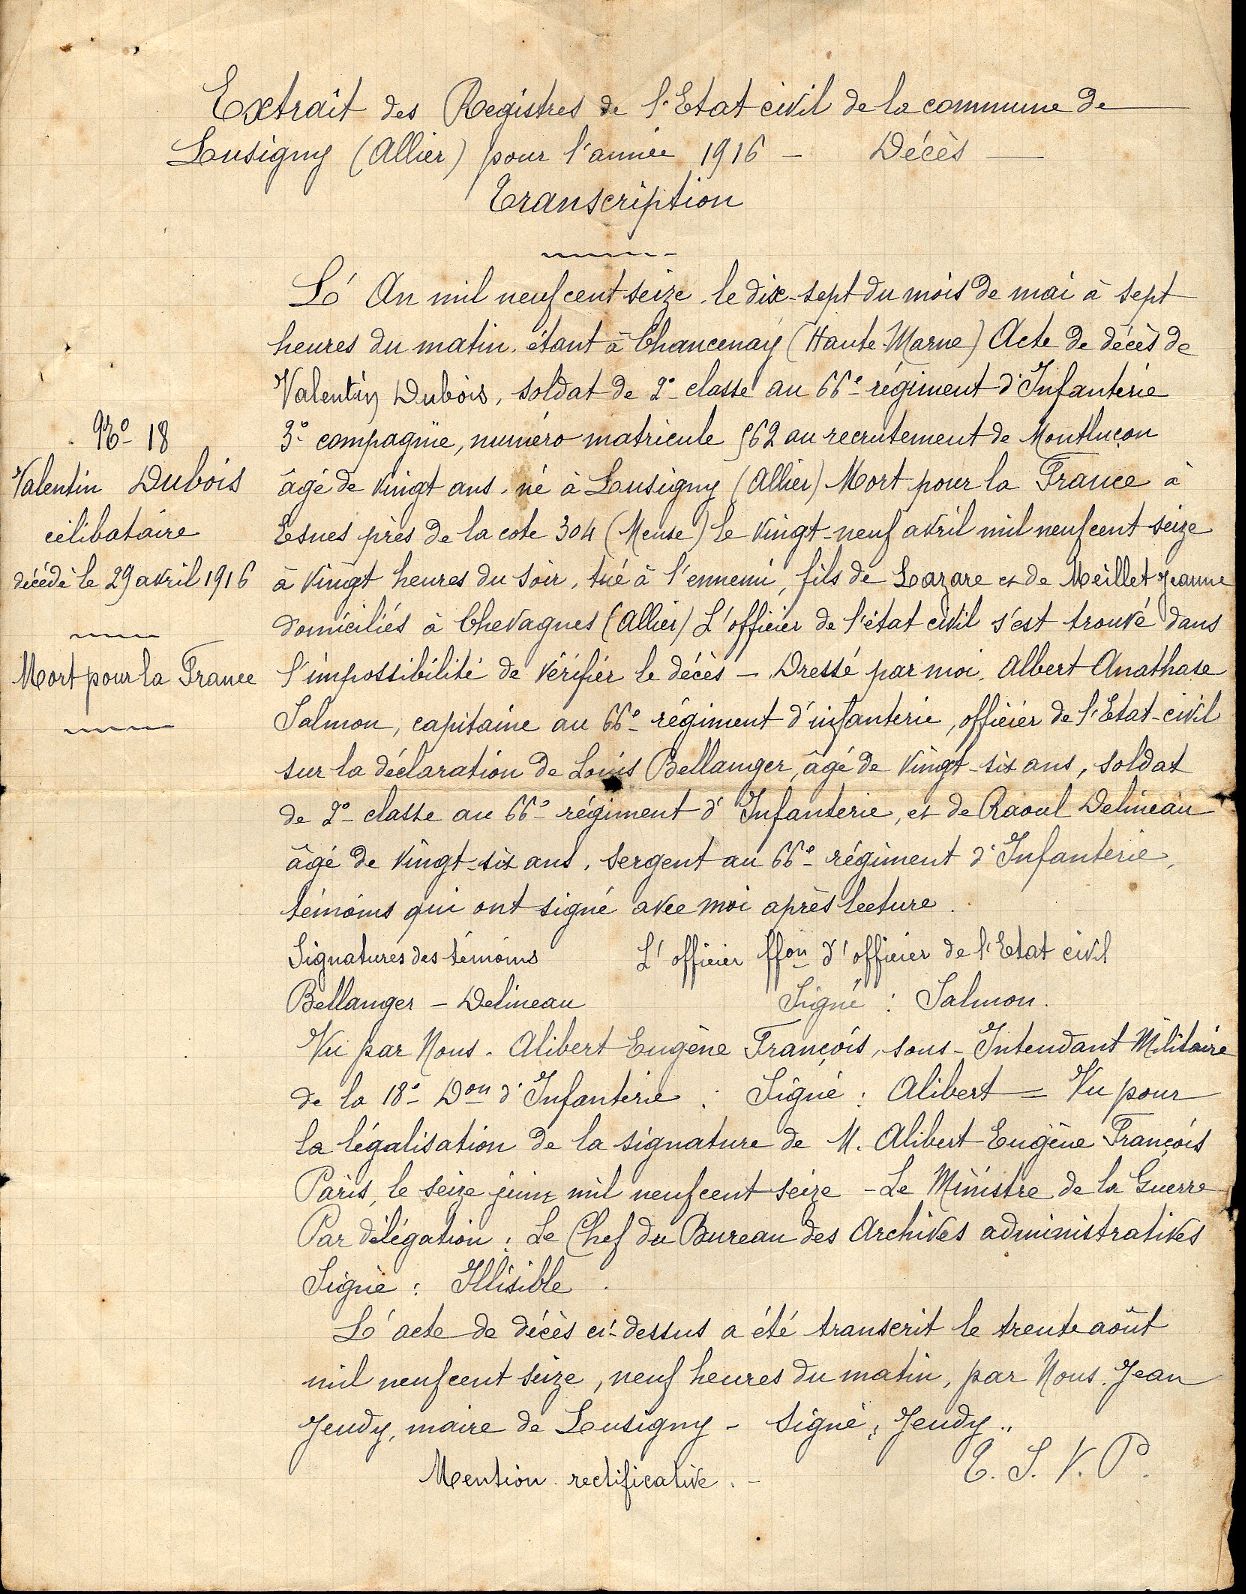 Extrait des Registres de l'Etat civil de la commune de
Lusigny (Allier) pour l'année 1916 – Décès –
Transcription
L'An mil neuf cent seize. le dix-sept du mois de mai à sept
heures du matin. étant à Chancenay (Haute Marne) Acte de décès de
Valentin Dubois, soldat de 2e classe au 66e régiment d'Infanterie
3e compagnie, numéro matricule 562 au recrutement de Montluçon
âgé de vingt ans. né à Lusigny (Allier) Mort pour la France à
Esnes près de la cote 304 (Meuse) le vingt-neuf avril mil neuf cent seize
à vingt heures du soir, tué à l'ennemi, fils de Lazare et de Meillet Jeanne
domiciliés à Chevagnes (Allier) L'officier de l'état civil s'est trouvé dans
l'impossibilité de vérifier le décès – Dressé par moi. Albert Anathase
Salmon, capitaine au 66e régiment d'infanterie, officier de l'Etat-civil
sur la déclaration de Louis Bellanger, âgé de vingt-six ans, soldat
de 2e classe au 66e régiment d'Infanterie, et de Raoul Delineau
âgé de vingt-six ans. sergent au 66e régiment d'Infanterie,
témoins qui ont signé avec moi après lecture.
No 18
Valentin Dubois
célibataire
décédé le 29 avril 1916
Mort pour la France
Signatures des témoins L'officier ffon d'officier de l'Etat civil
Bellanger – Delineau Signé : Salmon.
Vu par Nous. Alibert Eugène François, sous-Intendant Militaire
de la 18e Don d'Infanterie : Signé : Alibert = Vu pour
la légalisation de la signature de M. Alibert Eugène François
Paris, le seize juin mil neuf cent seize – Le Ministre de la Guerre
Par délégation : Le Chef du Bureau des Archives administratives
Signé : Illisible.
L'acte de décès ci-dessus a été transcrit le trente août
mil neuf cent seize, neuf heures du matin, par Nous. Jean
Jeudy, maire de Lusigny – Signé : Jeudy..
Mention rectificative. – T. S. V. P.